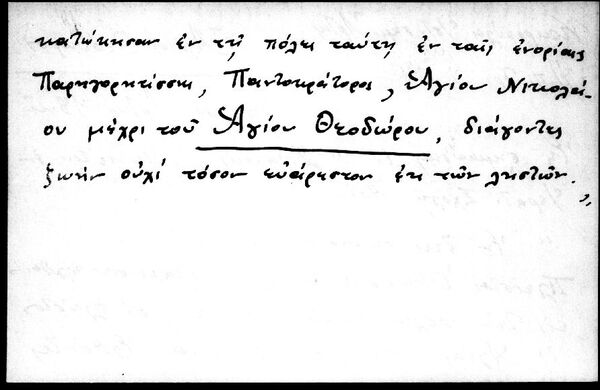 κατώκησαν ἐν τῇ πόλει ταύτῃ ἐν ταῖς ἐνορίαις
Παρηγορητίσσης, Παντοκράτορος, Ἁγίου Νικολά-
ου μέχρι τοῦ Ἁγίου Θεοδώρου, διάγοντες
ζωὴν οὐχί τόσον εὐάρεστον ἐκ τῶν λῃστῶν.